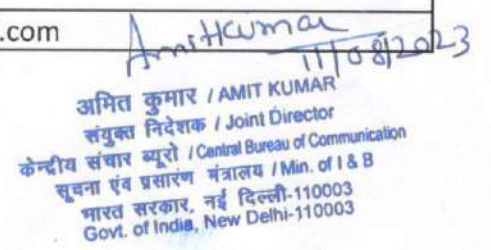 .com
AmitKumar
11/08/2023
अमित कुमार / AMIT KUMAR
संयुक्त निदेशक / Joint Director
केन्द्रीय संचार ब्यूरो / Central Bureau of Communication
सूचना एंव प्रसारण मंत्रालय / Min. of I & B
भारत सरकार, नई दिल्ली-110003
Govt. of India, New Delhi-110003